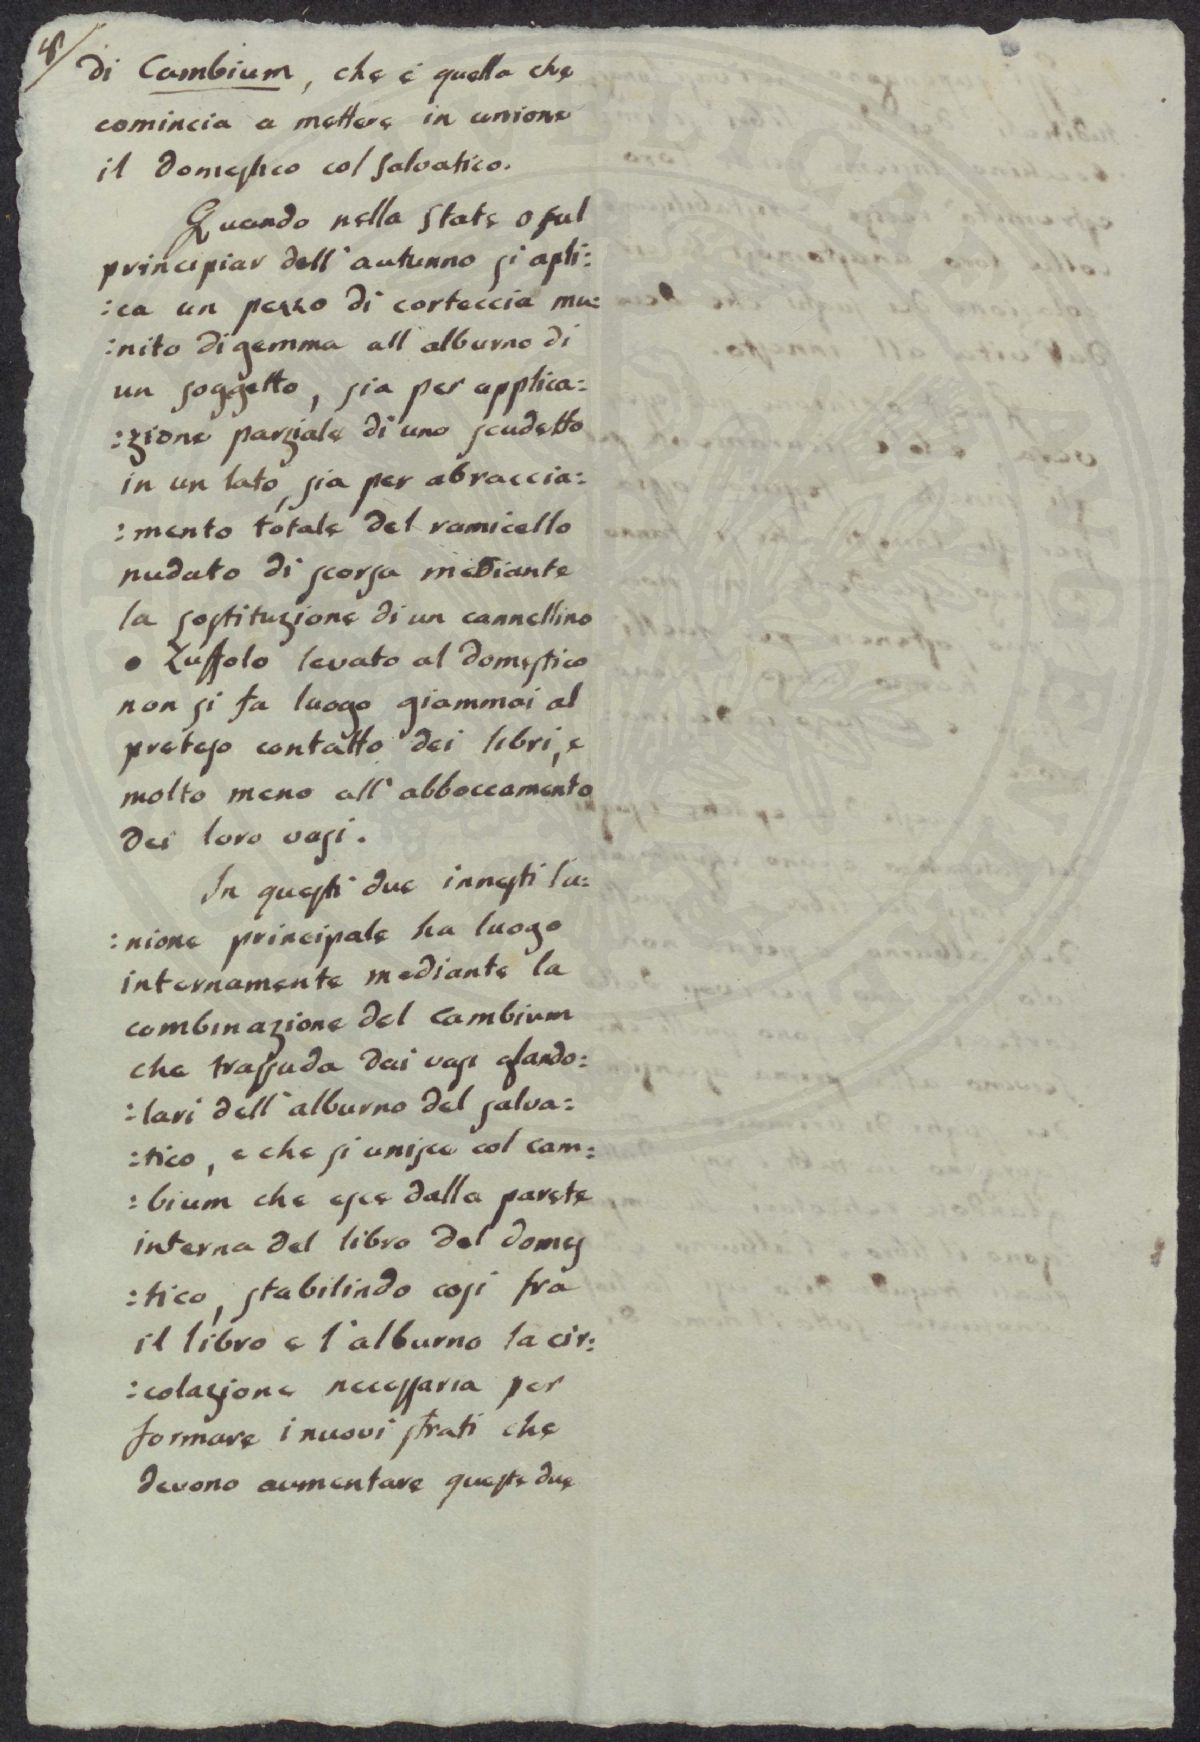 8/
di Cambium, che è quello che
comincia a mettere in unione
il domestico col salvatico.
Quando nella state o sul
principiar dell'autunno si apli:
:ca un pezzo di corteccia mu:
:nito di gemma all'alburno di
un soggetto, sia per applica:
:zione parziale di uno scudetto
in un lato, sia per abraccia:
:mento totale del ramicello
nudato di scorsa mediante
la sostituzione di un cannellino
o Zuffolo levato al domestico
non si fa luogo giammai al
preteso contatto dei libri, e
molto meno all'abboccamento
dei loro vasi.
In questi due innesti l'u:
:nione principale ha luogo
internamente mediante la
combinazione del Cambium
che trassuda dai vasi glando:
:lari dell'alburno del salva:
:tico, e che si unisce col cam:
:bium che esce dalla parete
interna del libro del domes
:tico, stabilindo così fra
il libro e l'alburno la cir:
:colazione necessaria per
formare i nuovi strati che
devono aumentare queste due